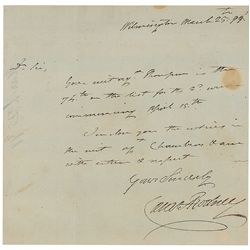 Wilmington March 25th 99.
Dr Sir,
Your writ vs Thompson is the
74th on the list for the 2d week
commencing April 15th
I inclose you the notices in
the suit of Chambers & am
with esteem & respect
Yours Sincerely
Caesar A Rodney